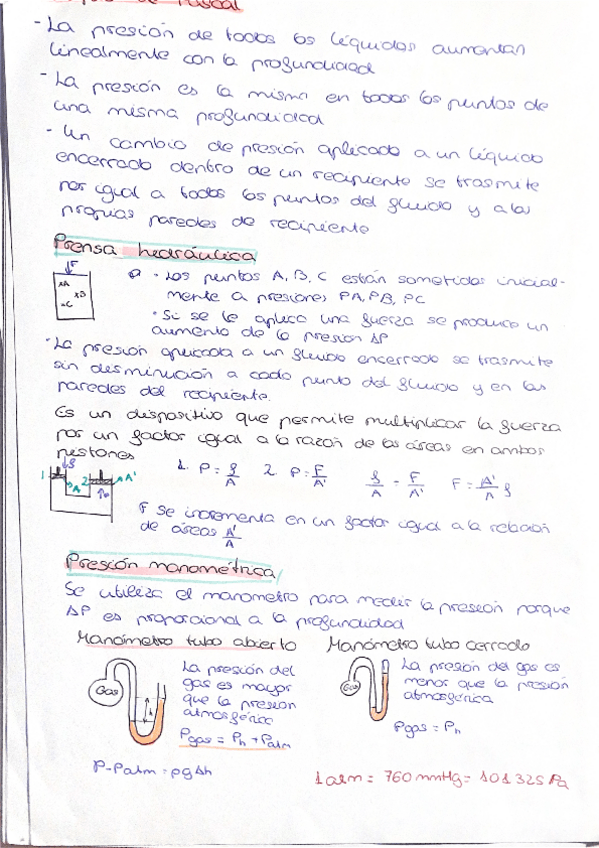 de Pascal
- La presión de todos los líquidos aumentan
linealmente con la profundidad
- La presión es la misma en todos los puntos de
una misma profundidad
- Un cambio de presión aplicado a un líquido
encerrado dentro de un recipiente se trasmite
por igual a todos los puntos del fluido y a las
propias paredes de recipiente
Prensa hidráulica
F
xA
xB
xC
· Los puntos A, B, C están sometidos inicial-
mente a presiones PA, PB, PC
· Si se le aplica una fuerza se produce un
aumento de la presión ΔP
· La presión aplicada a un fluido encerrado se trasmite
sin desminución a cada punto del fluido y en las
paredes del recipiente.
Es un dispositivo que permite multiplicar la fuerza
por un factor igual a la razón de las áreas en ambos
pistones
1 f A 2 A'
1. P = f/A 2. P = F/A' f/A = F/A' F = A'/A f
F se incrementa en un factor igual a la relación
de áreas A'/A
Presión manométrica
Se utiliza el manometro para medir la presión porque
ΔP es proporcional a la profundidad
Manómetro tubo abierto Manómetro tubo cerrado
Gas
h
La presión del
gas es mayor
que la presión
atmosférica
Pgas = Ph + Patm
P-Patm = ρgΔh
Gas
La presión del gas es
menor que la presión
atmosférica
Pgas = Ph
1atm = 760 mmHg = 101325 Pa